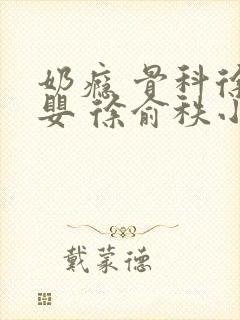 奶瘾 骨科徐
婴 徐俞秩小
戴蒙德